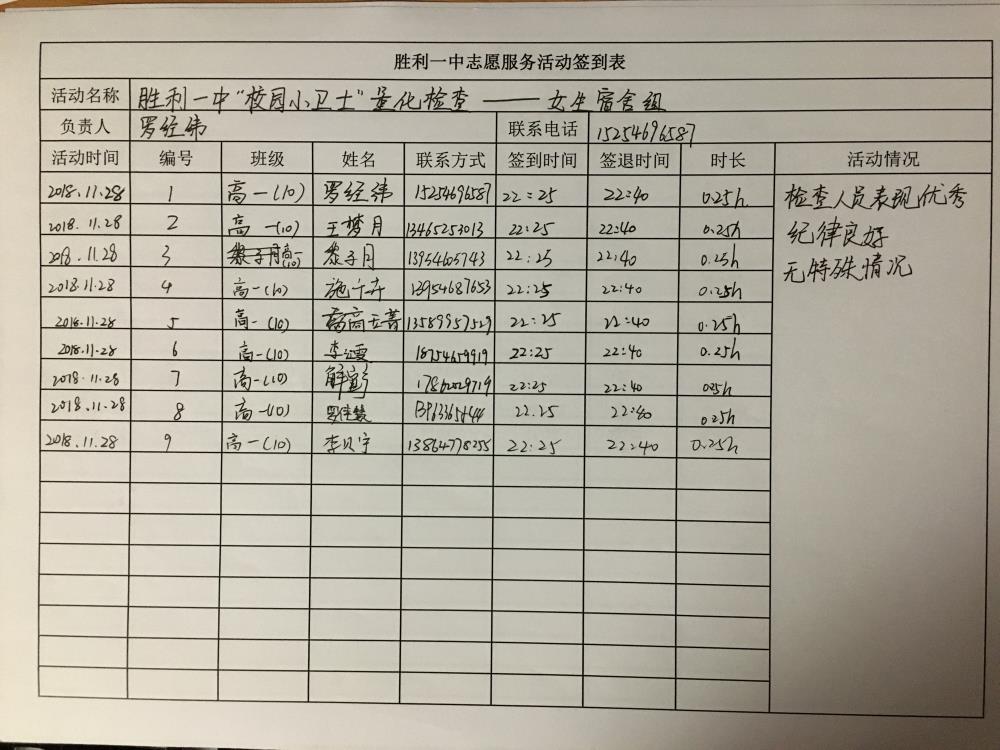 胜利一中志愿服务活动签到表
活动名称 胜利一中“校园小卫士”量化检查——女生宿舍组
负责人 罗经纬 联系电话 15254696587
活动时间 编号 班级 姓名 联系方式 签到时间 签退时间 时长 活动情况
2018.11.28 1 高一(10) 罗经纬 15254696587 22:25 22:40 0.25h 检查人员表现优秀
2018.11.28 2 高一(10) 王梦月 13465253013 22:25 22:40 0.25h 纪律良好
2018.11.28 3 高一(10) 黎子月 13954605743 22:25 22:40 0.25h 无特殊情况
2018.11.28 4 高一(10) 13954687653 22:25 22:40 0.25h
2018.11.28 5 高一(10) 13589957529 22:25 22:40 0.25h
2018.11.28 6 高一(10) 18754659919 22:25 22:40 0.25h
2018.11.28 7 高一(10) 22:25 22:40 0.25h
2018.11.28 8 高一(10) 罗佳慧 22:25 22:40 0.25h
2018.11.28 9 高一(10) 李贝宁 13864778255 22:25 22:40 0.25h